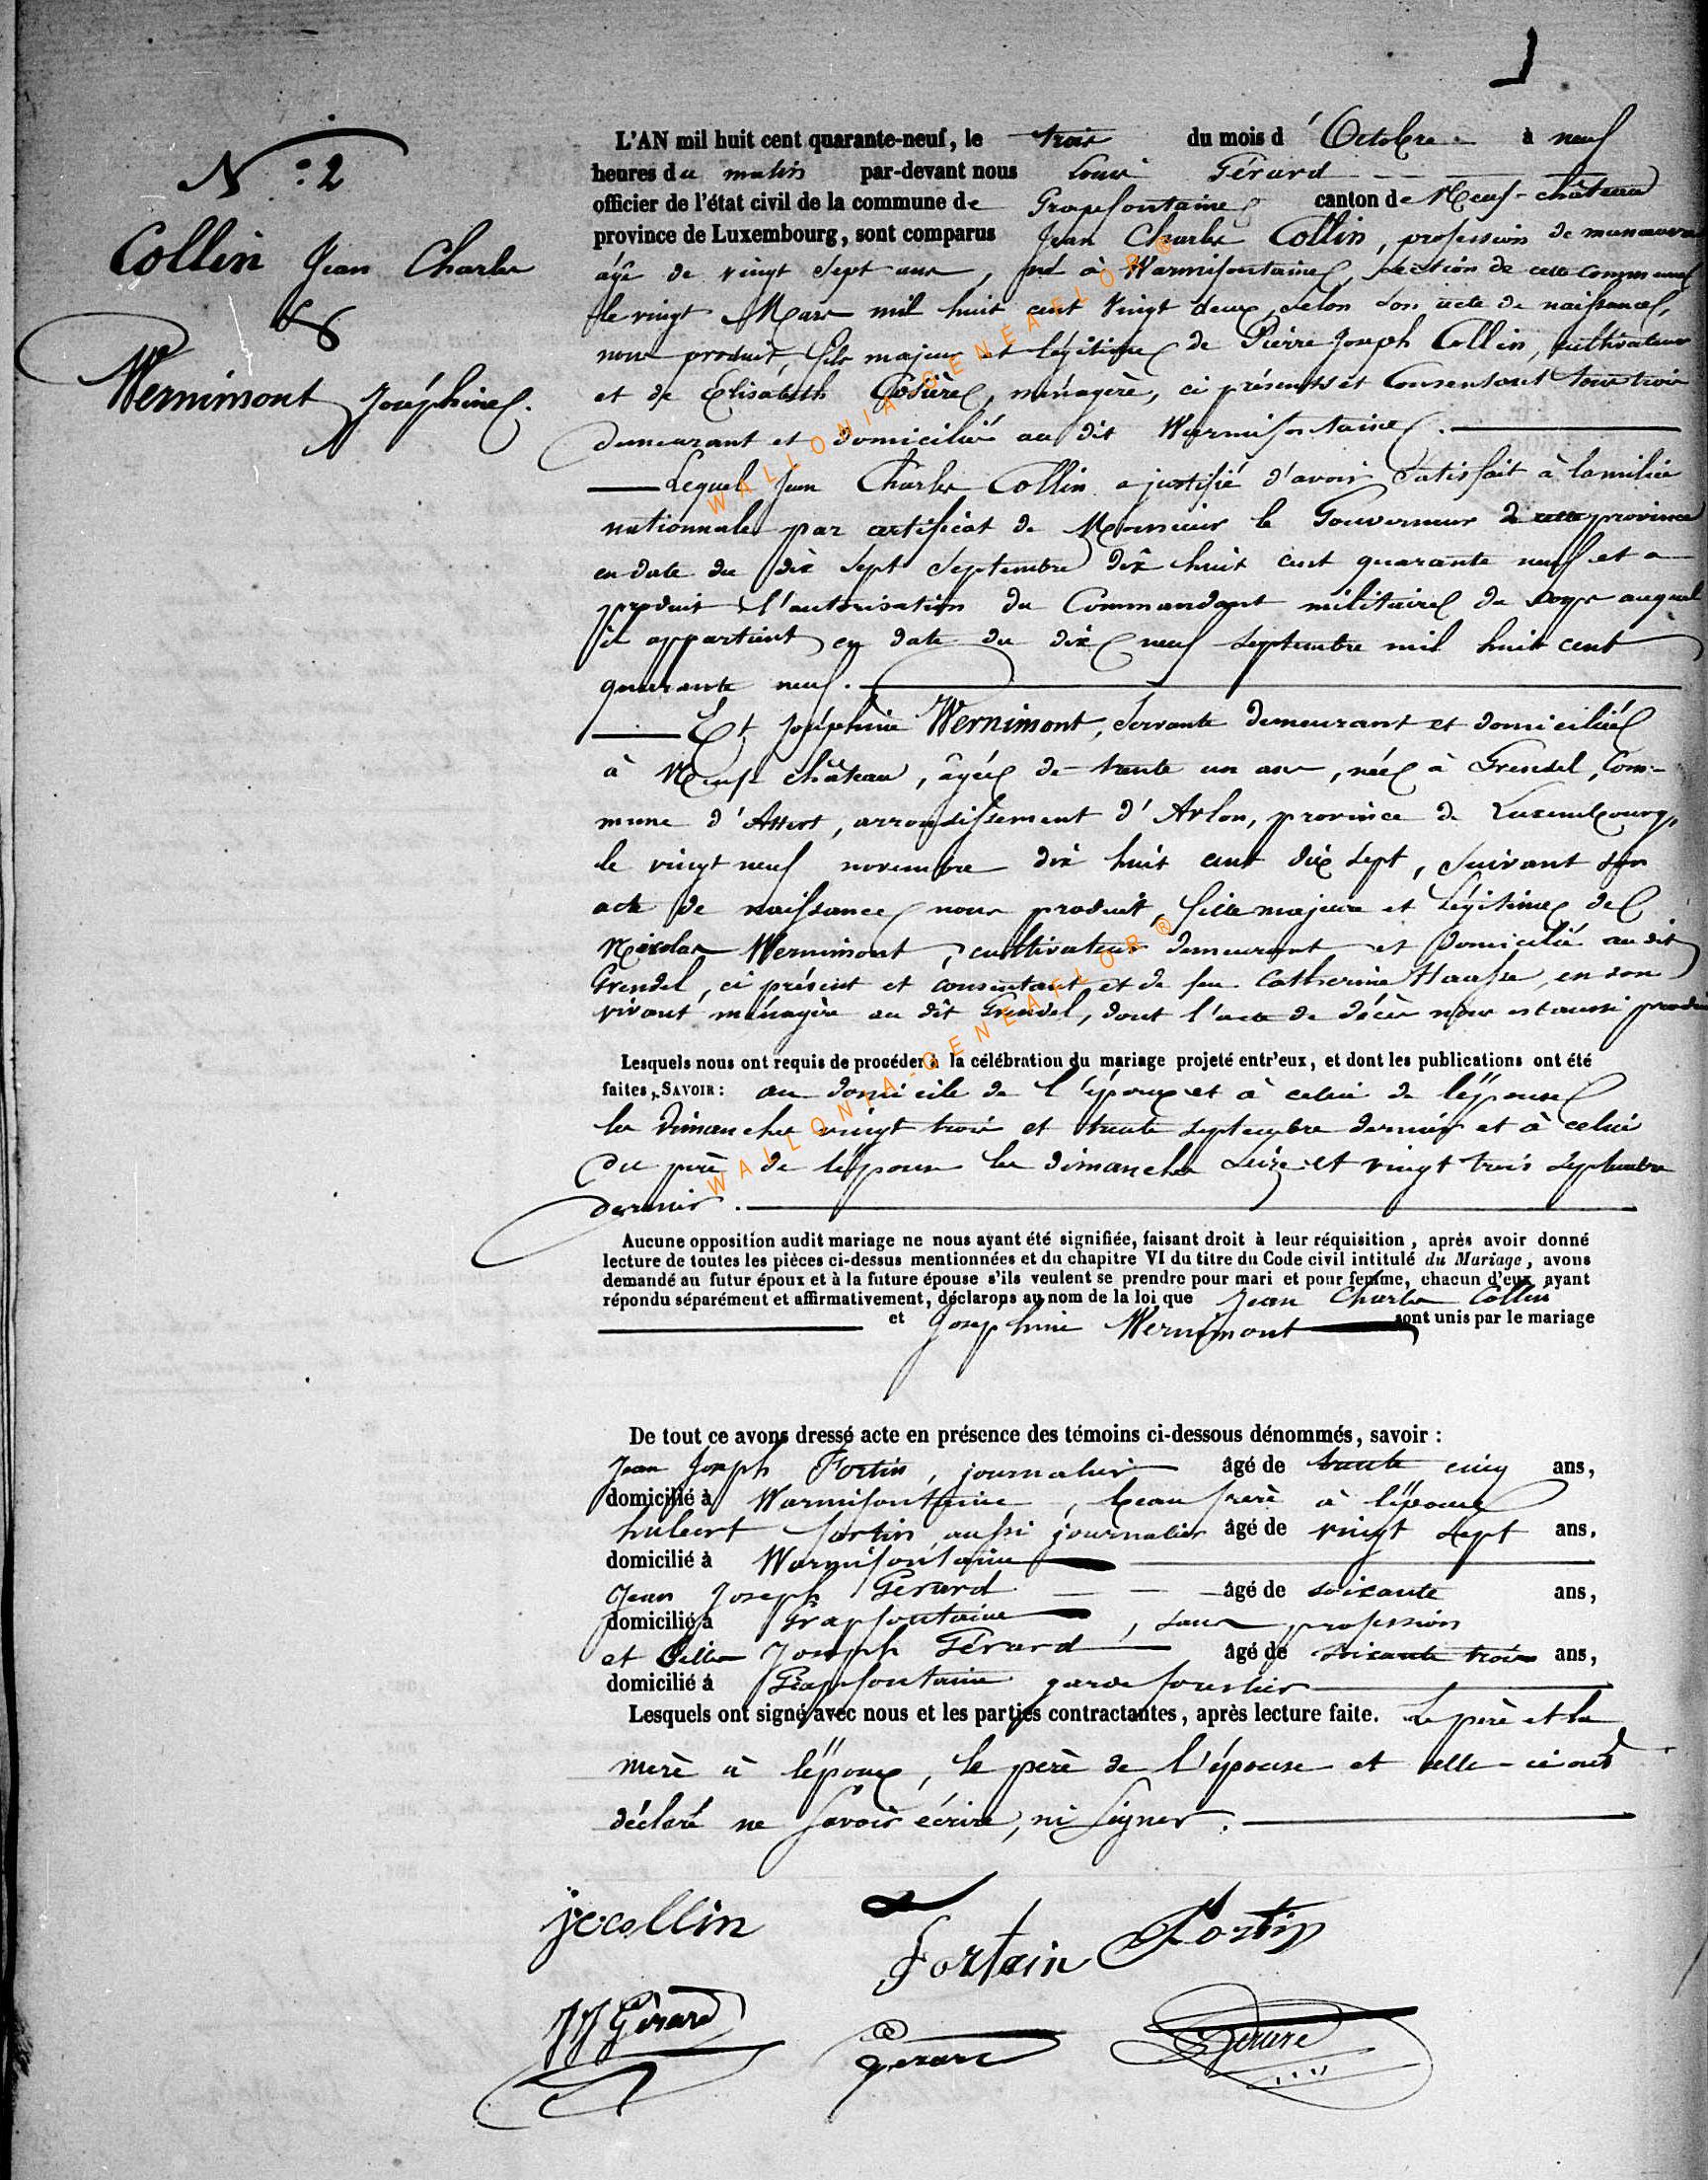 N.º 2
Collin Jean Charles
&
Wernimont Joséphine.
L'AN mil huit cent quarante-neuf, le trois du mois d'Octobre à neuf
heures du matin par-devant nous Louis Gérard
officier de l'état civil de la commune de Grapfontaine canton de Neuf-château
province de Luxembourg, sont comparus Jean Charles Collin, profession de manœuvre
âgé de vingt sept ans, né à Warmifontaine, section de cette commune
le vingt Mars mil huit cent vingt deux, selon son acte de naissance,
nous produit, fils majeur et légitime de Pierre Joseph Collin, cultivateur
et de Elisabeth ménagère, ci présents et consentant tous trois
demeurant et domicilié au dit Warmifontaine.
Lequel Jean Charles Collin a justifié d'avoir satisfait à la milice
nationnale par certificat de Monsieur le Gouverneur de cette province
en date du dix sept Septembre dix huit cent quarante neuf et a
produit l'autorisation du Commandant militaire du corps auquel
il appartient en date du dix neuf septembre mil huit cent
quarante neuf.
Et Joséphine Wernimont, servante demeurant et domiciliée
à Neuf château, âgée de trente un ans, née à Grendel, Com-
mune d'Attert, arrondissement d'Arlon, province de Luxembourg,
le vingt neuf novembre dix huit cent dix sept, suivant son
acte de naissance nous produit, fille majeure et légitime de
Nicolas Wernimont, cultivateur demeurant et domicilié au dit
Grendel, ci présent et consentant et de feu Catherine Haasse, en son
vivant ménagère au dit Grendel, dont l'acte de décès nous est aussi produit
Lesquels nous ont requis de procéder à la célébration du mariage projeté entr'eux, et dont les publications ont été
faites, SAVOIR: au domicile de l'époux et à celui de l'épouse
les dimanches vingt trois et trente septembre dernier et à celui
du père de l'épouse les dimanches seize et vingt trois septembre
dernier.
Aucune opposition audit mariage ne nous ayant été signifiée, faisant droit à leur réquisition, après avoir donné
lecture de toutes les pièces ci-dessus mentionnées et du chapitre VI du titre du Code civil intitulé du Mariage, avons
demandé au futur époux et à la future épouse s'ils veulent se prendre pour mari et pour femme, chacun d'eux ayant
répondu séparément et affirmativement, déclarons au nom de la loi que Jean Charles Collin
et Joséphine Wernimont sont unis par le mariage
De tout ce avons dressé acte en présence des témoins ci-dessous dénommés, savoir:
Jean Joseph Fortin, journalier âgé de trente cinq ans,
domicilié à Warmifontaine, beau frère à l'époux
hubert fortin aussi journalier âgé de vingt sept ans,
domicilié à Warmifontaine
Jean Joseph Gérard âgé de soixante ans,
domicilié à Grapfontaine, sans profession
et Gilles Joseph Gérard âgé de soixante trois ans,
domicilié à Grapfontaine garde forestier
Lesquels ont signé avec nous et les parties contractantes, après lecture faite. Le père et la
mère à l'époux, le père de l'épouse et celle-ci ont
déclaré ne savoir écrire, ni signer.
jccollin
Fortain Fortin
JJ Gérard Gerard Gerard
WALLONIA-GENEAFLOR®
WALLONIA-GENEAFLOR®